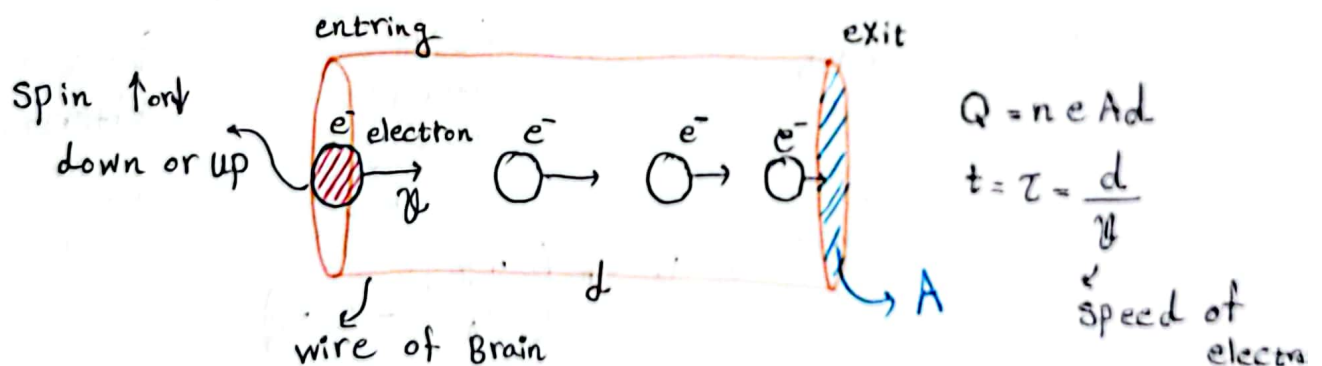 entring
exit
spin ↑or↓
down or up
e⁻ electron
e⁻
e⁻
e⁻
v
d
A
wire of Brain
Q = n e A d
t = τ = d / v
speed of
electro